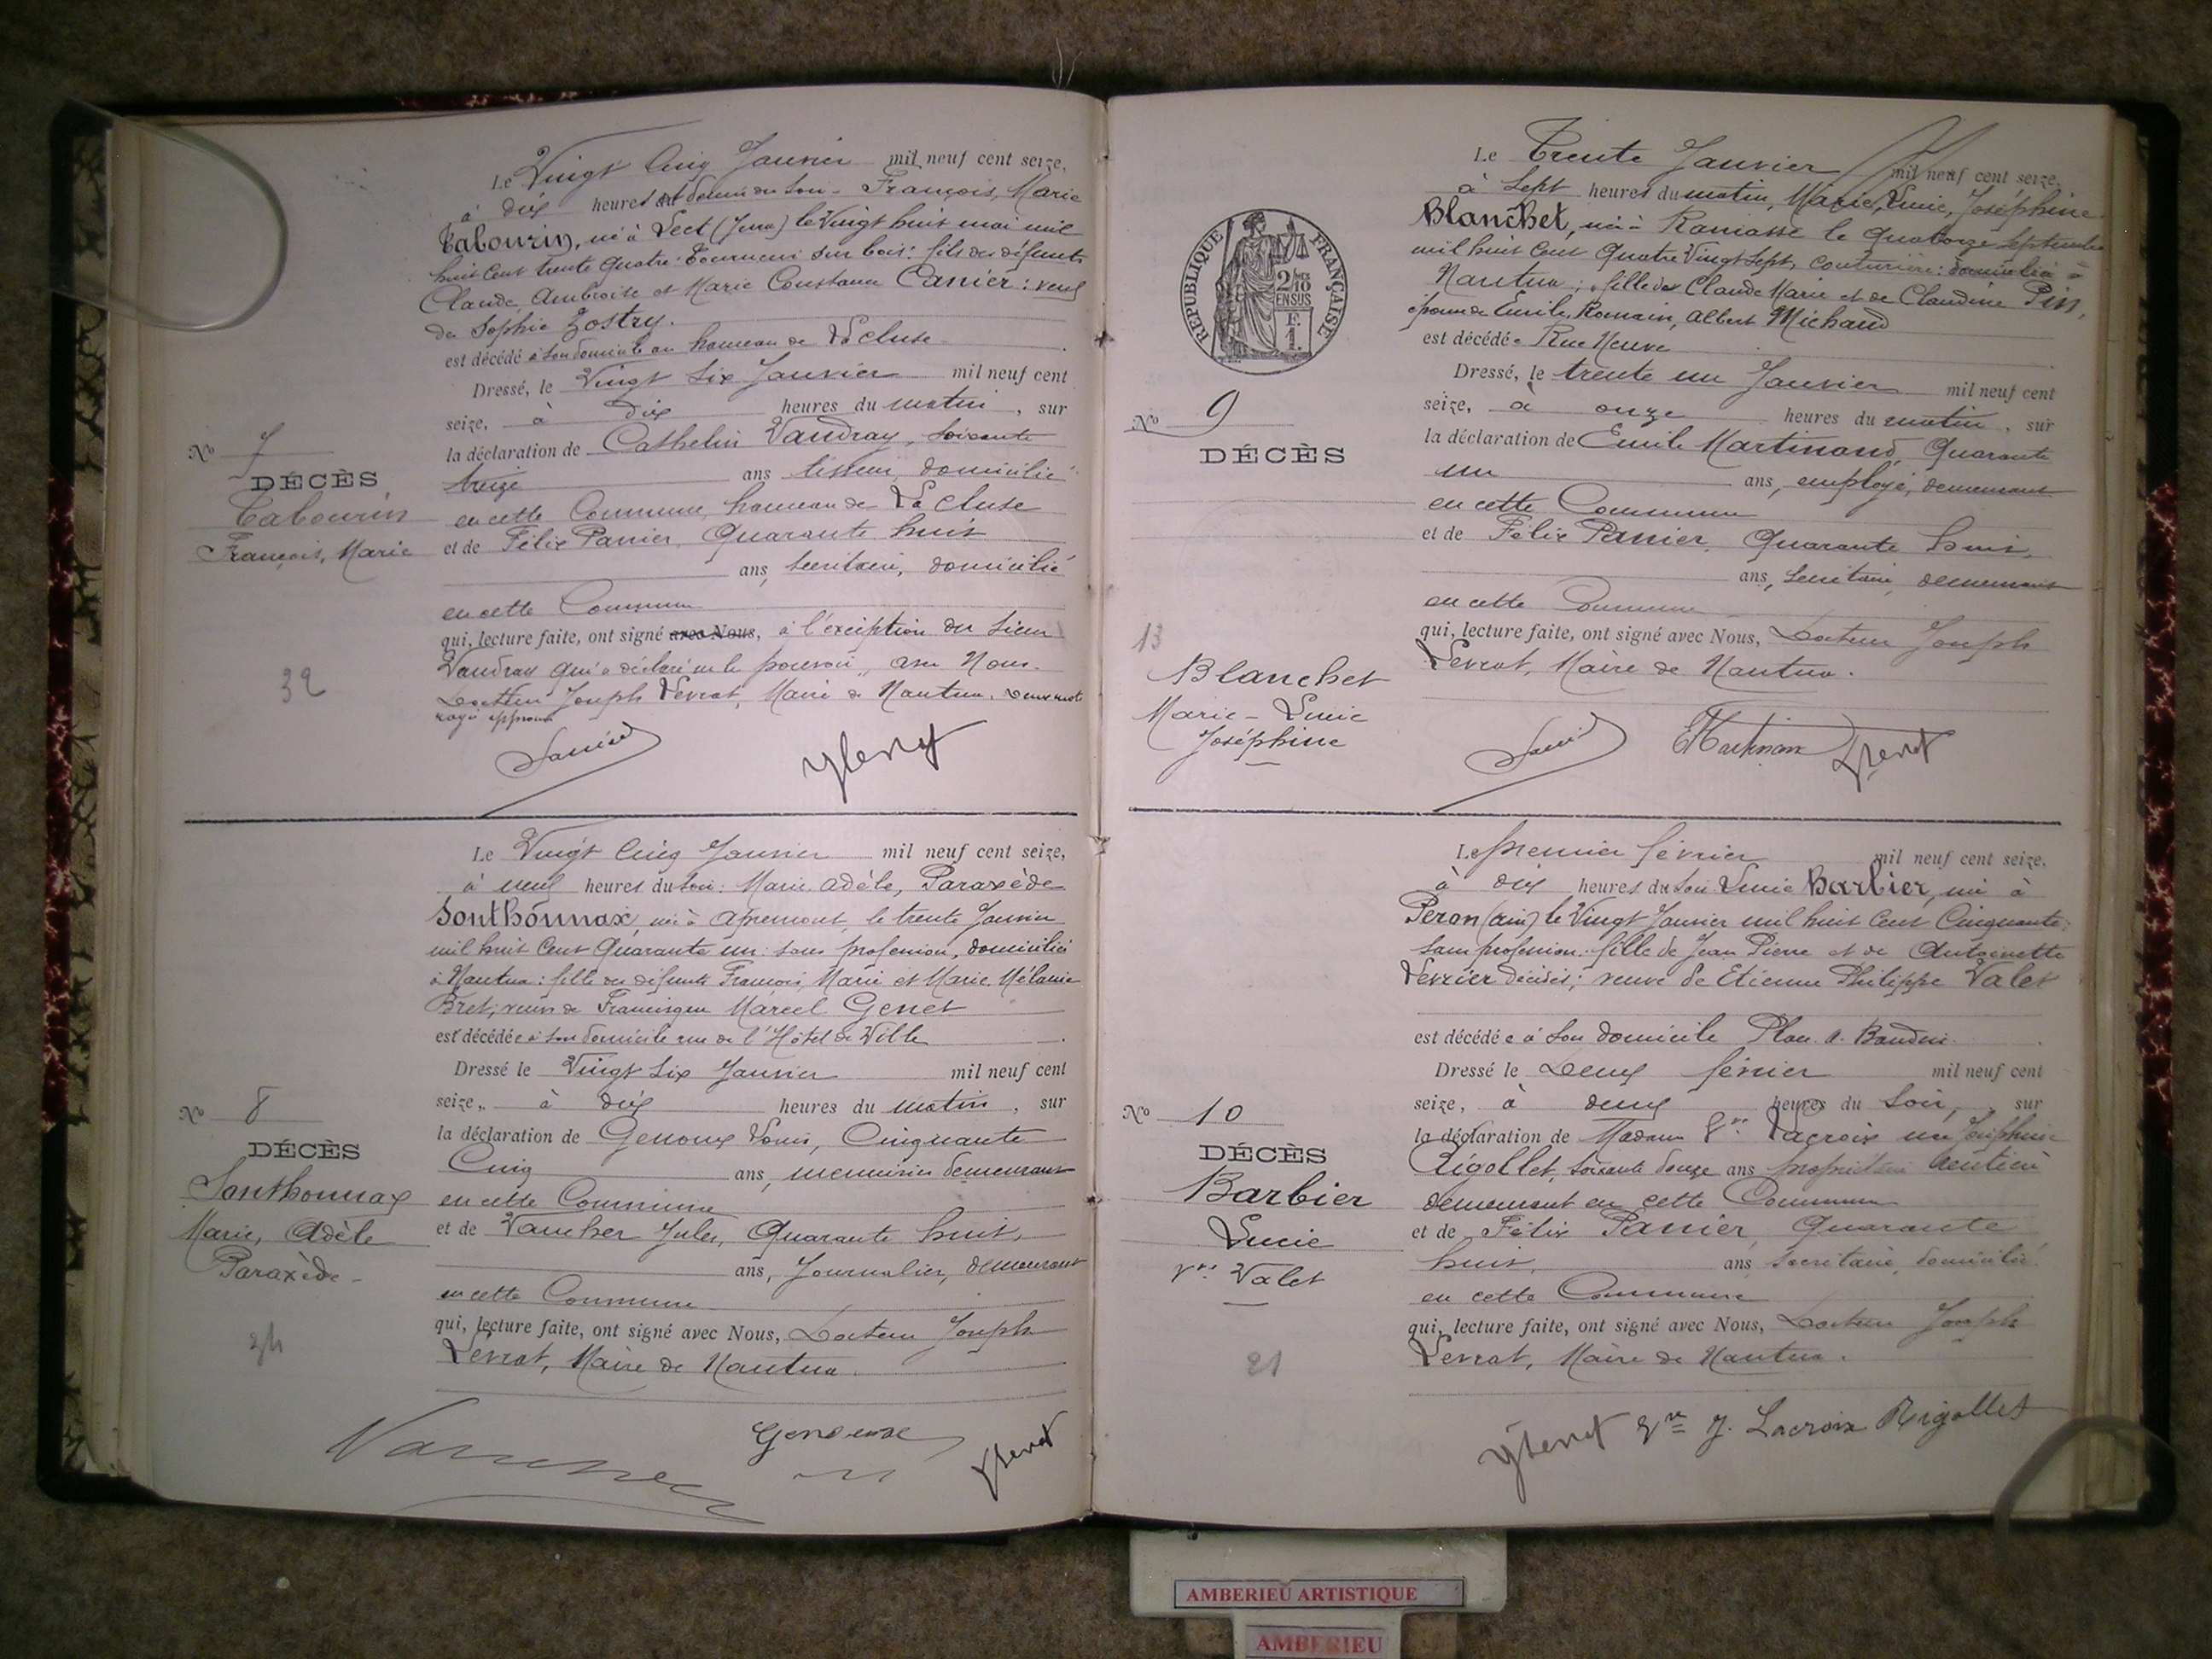 Le Vingt Cinq Janvier mil neuf cent seize,
à dix heures du soir François, Marie
Tabourin, né à Lect (Jura) le Vingt huit mai mil
huit Cent trente Quatre: Tourneur sur bois: fils des défunts
Claude Ambroise et Marie Constance Canier: veuf
de Sophie Zostry.
est décédé à son domicile au hameau de La cluse
Dressé, le Vingt Six Janvier mil neuf cent
seize, à dix heures du matin, sur
la déclaration de Cathelin Vaudray, soixante
treize ans tisseur, domicilié
en cette Commune, hameau de La Cluse
et de Félix Panier, Quarante huit
ans, secrétaire, domicilié
en cette Commune
qui, lecture faite, ont signé avec Nous, à l'exception du Sieur
Vaudray qui a déclaré ne le pouvoir, avec Nous
Docteur Joseph Levrat, Maire de Nantua. Deux mots
rayés approuvés
No 7
DÉCÈS
Tabourin
François, Marie
32
Le Vingt Cinq Janvier mil neuf cent seize,
à neuf heures du soir: Marie, Adèle, Paraxède
Sonthonnax, née à Apremont, le trente Janvier
mil huit Cent Quarante un: sans profession, domiciliée
à Nantua: fille des défunts François Marie et Marie Mélanie
Bret; veuve de Francisque Marcel Genet
est décédée à son domicile rue de l'Hôtel de Ville
Dressé le Vingt Six Janvier mil neuf cent
seize, à dix heures du matin, sur
la déclaration de Genoux Louis, Cinquante
Cinq ans, menuisier demeurant
en cette Commune
et de Vaucher Jules, Quarante huit,
ans, Journalier, demeurant
en cette Commune
qui, lecture faite, ont signé avec Nous, Docteur Joseph
Levrat, Maire de Nantua.
No 8
DÉCÈS
Sonthonnax
Marie, Adèle
Paraxède
Le Trente Janvier mil neuf cent seize,
à Sept heures du matin, Marie, Lucie, Joséphine
Blanchet, née à Ramasse le Quatorze Septembre
mil huit Cent Quatre Vingt Sept, couturière: domiciliée à
Nantua; fille de Claude Marie et de Claudine Pin,
épouse de Emile, Romain, Albert Michaud
est décédée Rue Neuve
Dressé, le trente un Janvier mil neuf cent
seize, à onze heures du matin, sur
la déclaration de Emile Martinand, Quarante
un ans, employé, demeurant
en cette Commune
et de Félix Panier, Quarante huit,
ans, secrétaire, demeurant
en cette Commune
qui, lecture faite, ont signé avec Nous, Docteur Joseph
Levrat, Maire de Nantua.
RÉPUBLIQUE FRANÇAISE
2/10
EN SUS
F.
1.
No 9
DÉCÈS
13
Blanchet
Marie-Lucie
Joséphine
Le premier février mil neuf cent seize,
à dix heures du soir Lucie Barbier, née à
Peron (ain) le Vingt Janvier mil huit Cent Cinquante:
sans profession: fille de Jean Pierre et de Antoinette
Levrier décédés; veuve de Etienne Philippe Valet
est décédée à son domicile Place A. Baudin
Dressé le Deux février mil neuf cent
seize, à deux heures du soir, sur
la déclaration de Madame Vve Lacroix née Joséphine
Rigollet, soixante douze ans propriétaire rentière
demeurant en cette Commune
et de Félix Panier, Quarante
huit, ans secrétaire, domicilié
en cette Commune
qui, lecture faite, ont signé avec Nous, Docteur Joseph
Levrat, Maire de Nantua.
Vve J. Lacroix Rigollet
No 10
DÉCÈS
Barbier
Lucie
Vve Valet
21
AMBERIEU ARTISTIQUE
AMBERIEU